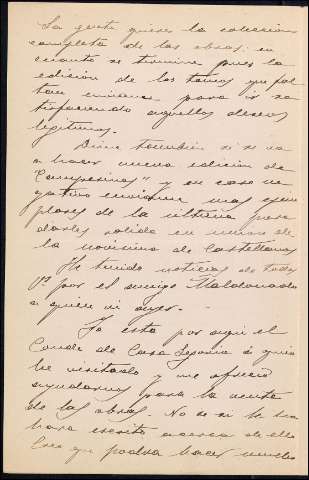 La gente quiere la coleccion
completa de las obras: en
cuanto se termine pues la
edicion de los tomos que fal
tan envienme para ir sa
tisfaciendo aquellos deseos
legítimos.
Dime tambien si se va
a hacer nueva edicion de
"Campesinas" y en caso ne
gativo enviarme mas ejem
plares de la ultima para
darles salida en union de
la novisima de Castellanas
He tenido noticias de todos
Vs por el amigo Maldonado
a quien vi ayer.
Ya esta por aqui el
Conde de Casa Segovia á quien
he visitado y me ofreció
ayudarnos para la venta
de las obras. No se si le
habra escrito acerca de ello
Creo que podra hacer mucho